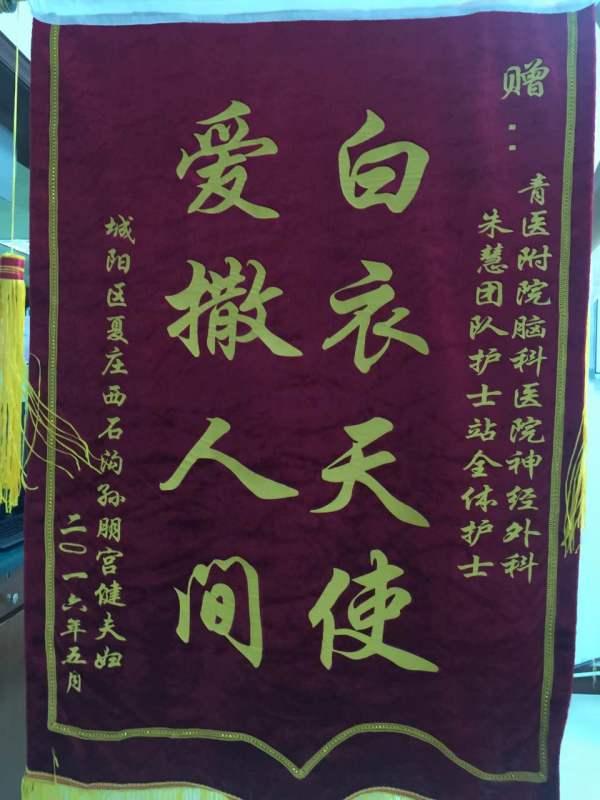 赠：
青医附院脑科医院神经外科
朱慧团队护士站全体护士
白衣天使
爱撒人间
城阳区夏庄西石沟孙朋宫健夫妇
二〇一六年五月